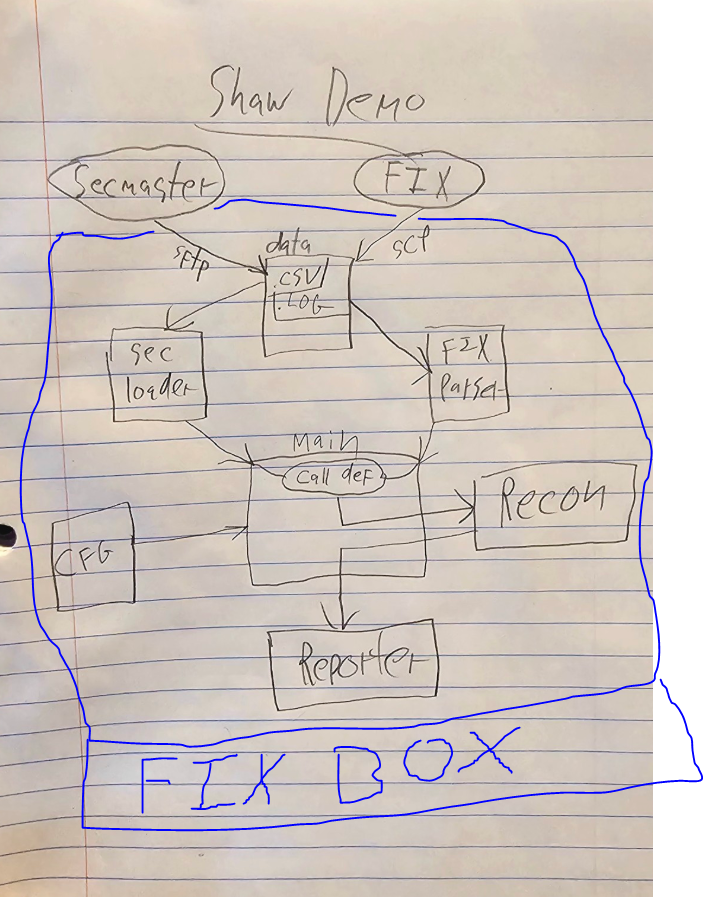 Shaw Demo
Secmaster
FIX
sftp
data
scp
.CSV
.LOG
sec
loader
FIX
Parser
Main
call def
Recon
CFG
Reporter
FIX BOX